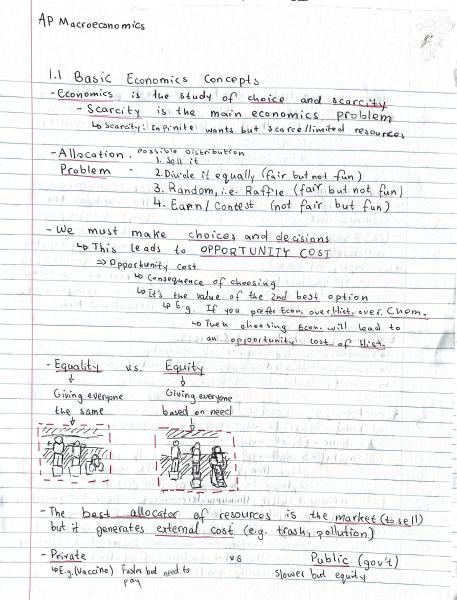 AP Macroeconomics
1.1 Basic Economics Concepts
- Economics is the study of choice and scarcity
- Scarcity is the main economics problem
↳ Scarcity: Infinite wants but scarce/limited resources
- Allocation . Possible Distribution
1. Sell it
Problem - 2. Divide it equally (fair but not fun)
3. Random, i.e. Raffle (fair but not fun)
4. Earn/Contest (not fair but fun)
- We must make choices and decisions
↳ This leads to OPPORTUNITY COST
⇒ Opportunity cost
↳ Consequence of choosing
↳ It's the value of the 2nd best option
↳ E.g. If you prefer Econ. over Hist. over Chem.
↳ Then choosing Econ. will lead to
an opportunity cost of Hist.
- Equality vs. Equity
Giving everyone Giving everyone
the same based on need
- The best allocator of resources is the market (to sell)
but it generates external cost (e.g. trash, pollution)
- Private vs Public (gov't)
↳ E.g. (Vaccine) Faster but need to slower but equity
pay